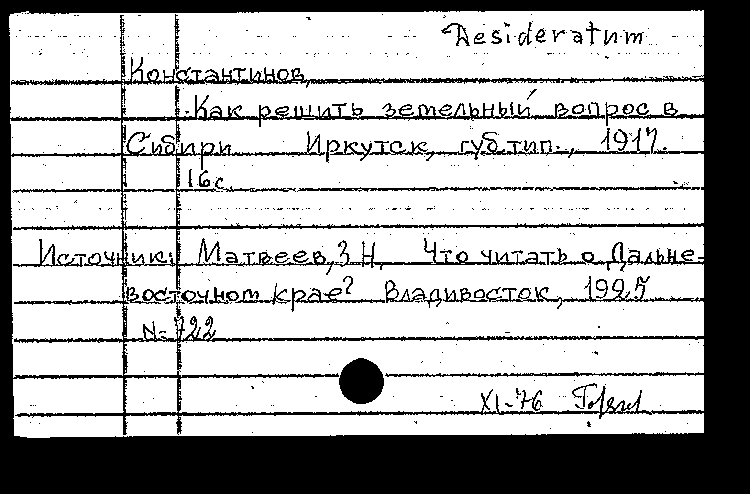 Desideratum
Константинов,
Как решить земельный вопрос в
Сибири Иркутск, губ.тип., 1917.
16 с.
Источник: Матвеев, З.Н. Что читать о Дальне-
восточном крае? Владивосток, 1925
N-722
XI-76